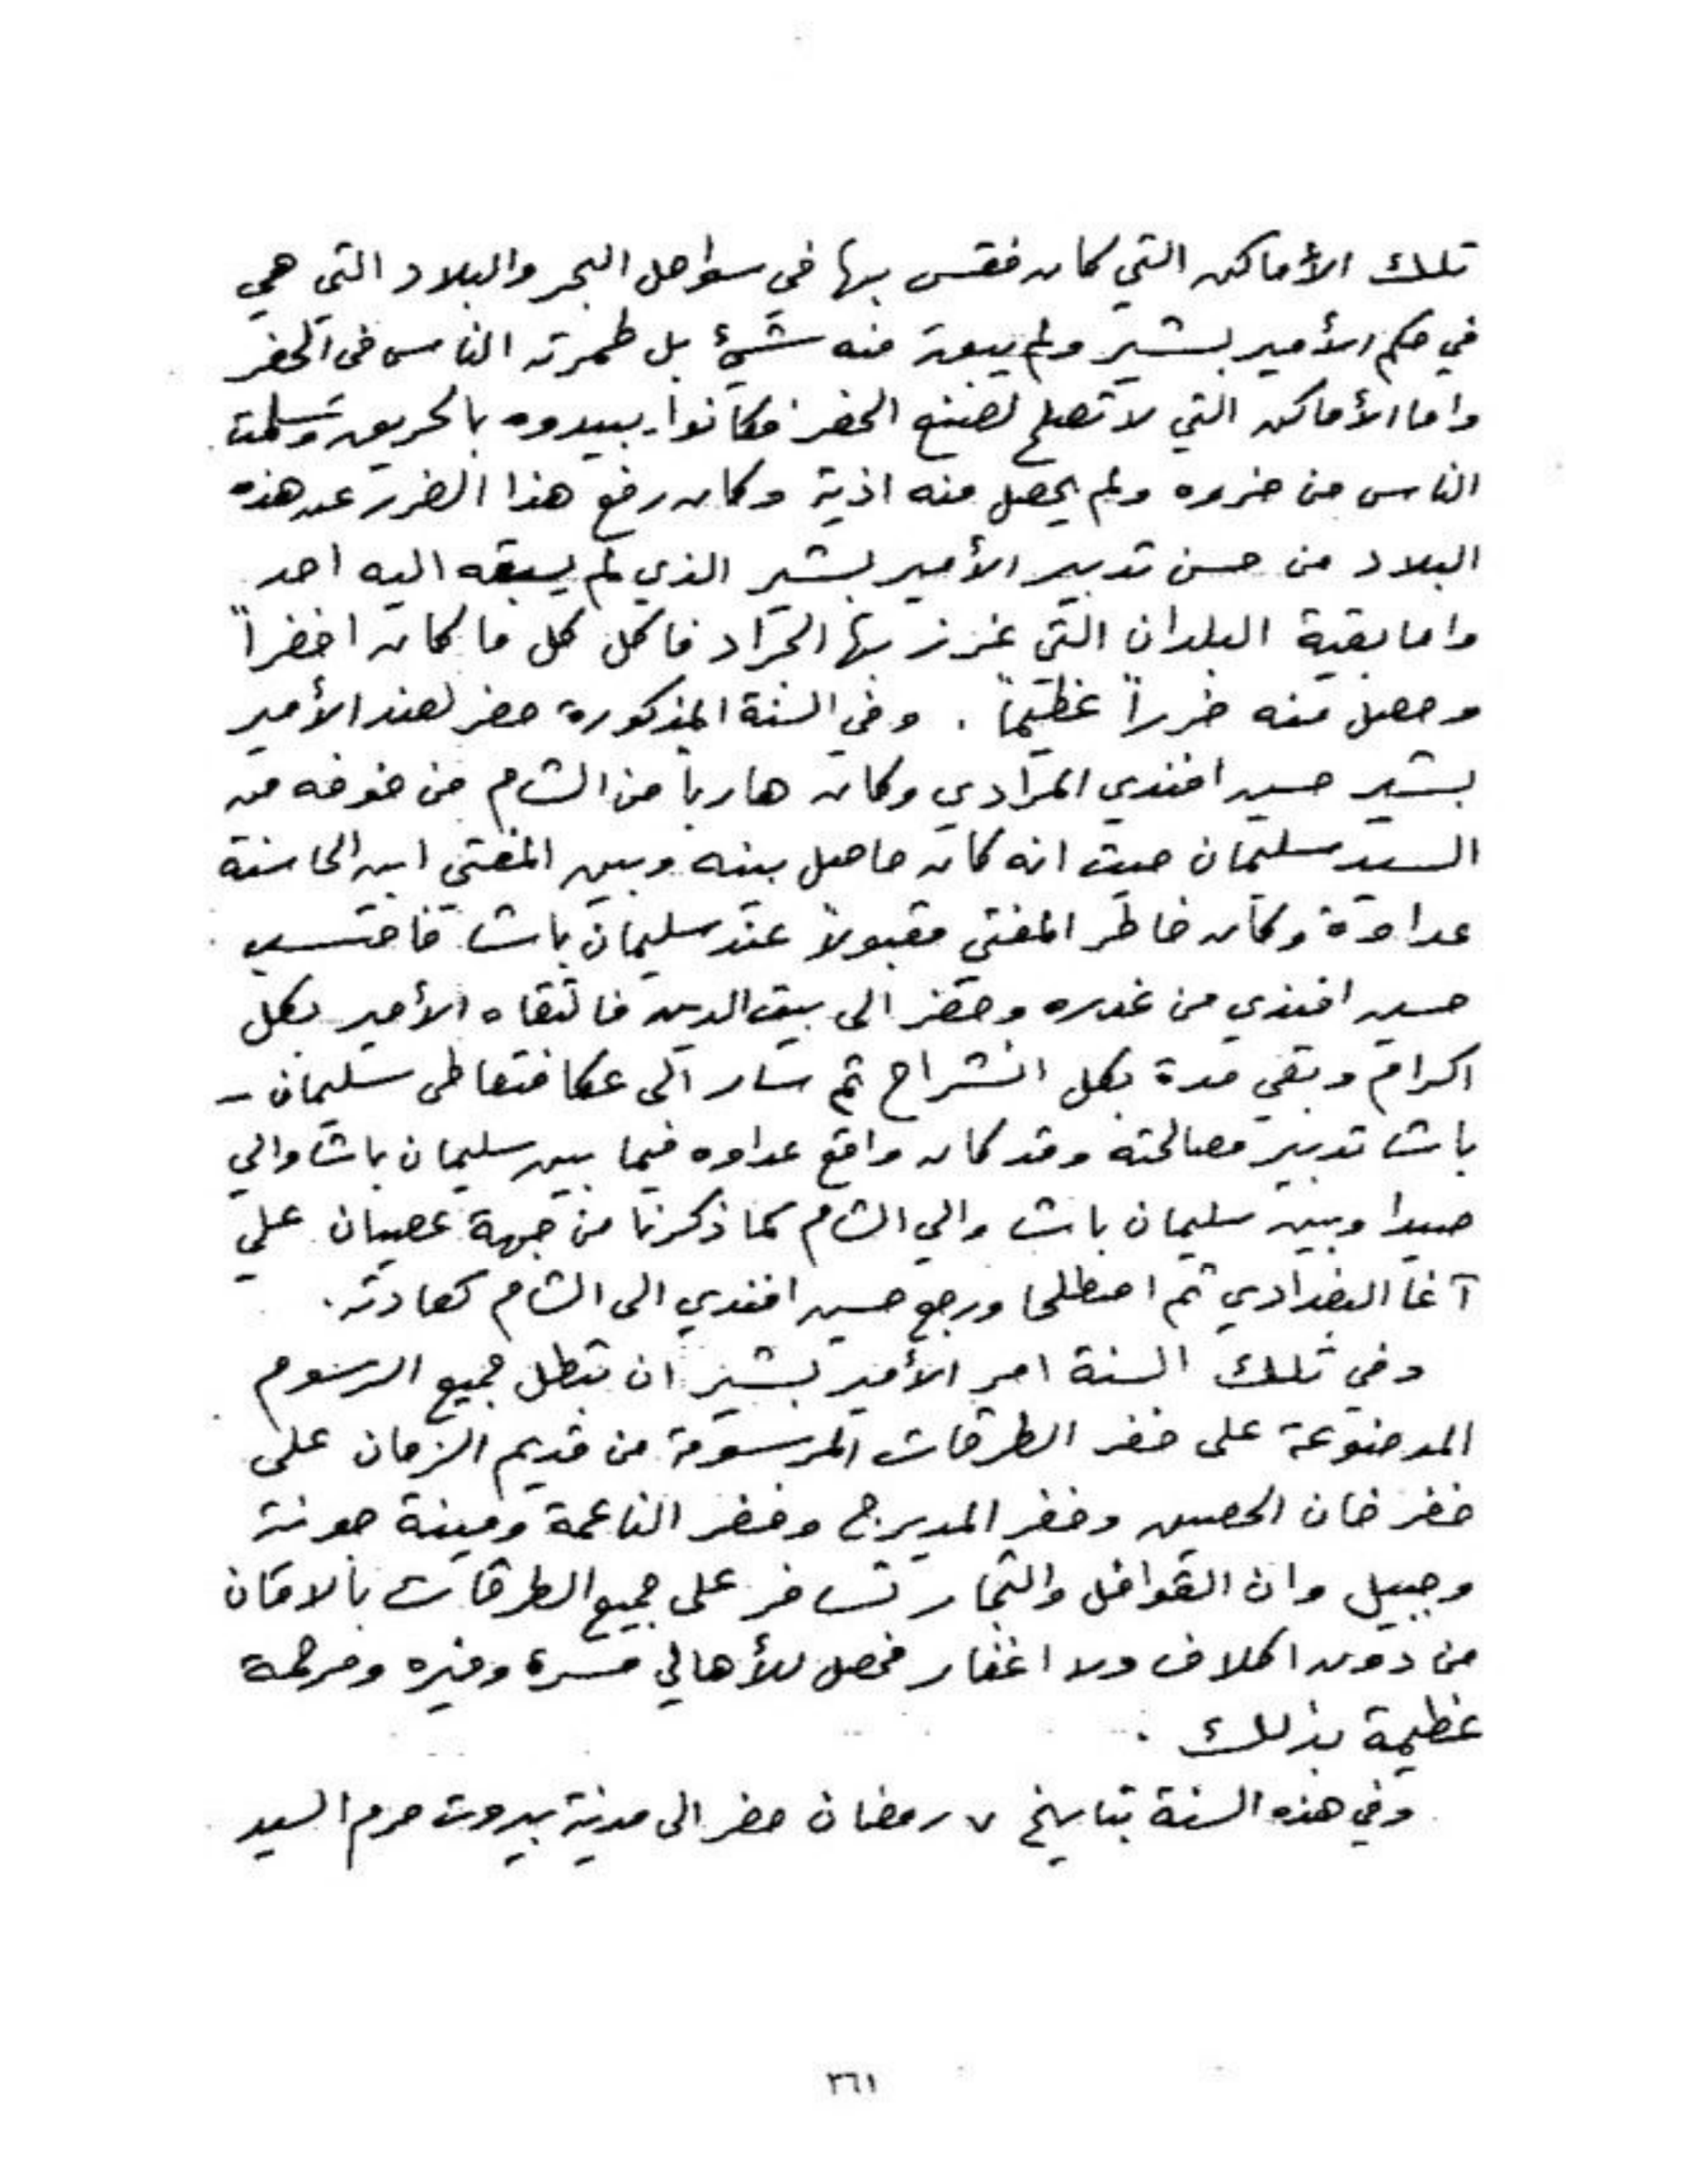 تلك الأماكن التي كان فقس بها في سواحل البحر والبلاد التي هي
في حكم الأمير بشير ولم يبق منه شيئ بل طمرته الناس في الحفر
واما الأماكن التي لا تصلح لصنع الحفر فكانوا يبيدوه بالحريق وسلمت
الناس من ضروه ولم يحصل منه اذية وكان رفع هذا الضرر عن هذه
البلاد من حسن تدبير الأمير بشير الذي لم يسبقه اليه احد
واما بقية البلدان التي غرز بها الجراد فاكل كل ما كان اخضراً
وحصل منه ضرراً عظيماً . وفي السنة المذكورة حضر لعند الأمير
بشير حسين افندي المرادي وكان هارباً من الشام من خوفه من
السيد سليمان حيث انه كان حاصل بينه وبين المفتي ابن الحاسنة
عداوة وكان خاطر المفتي مقبولاً عند سليمان باشا فاحتسب
حسين افندي من غدره وحضر الى بيت الدين فالتقاه الأمير بكل
اكرام وبقي مدة بكل انشراح ثم سار الى عكا فتعاطى سليمان -
باشا تدبير مصالحته وقد كان واقع عداوه فيما بين سليمان باشا والي
صيدا وبين سليمان باشا والي الشام كما ذكرنا من جهة عصيان علي
آغا البغدادي ثم اصطلحا ورجع حسين افندي الى الشام كعادته .
وفي تلك السنة امر الأمير بشير ان تبطل جميع الرسوم
الموضوعة على خفر الطرقات المرسومة من قديم الزمان على
خفر خان الحصين وخفر المديرج وخفر الناعمة ومينة جونة
وجبيل وان القوافل والتجار تسافر على جميع الطرقات بالامان
من دون اكلاف ولا اغفار فحصل للأهالي مسرة وفيره ومرحمة
عظيمة بذلك .
وفي هذه السنة بتاريخ ٧ رمضان حضر الى مدينة بيروت حرم السيد
٣٦١